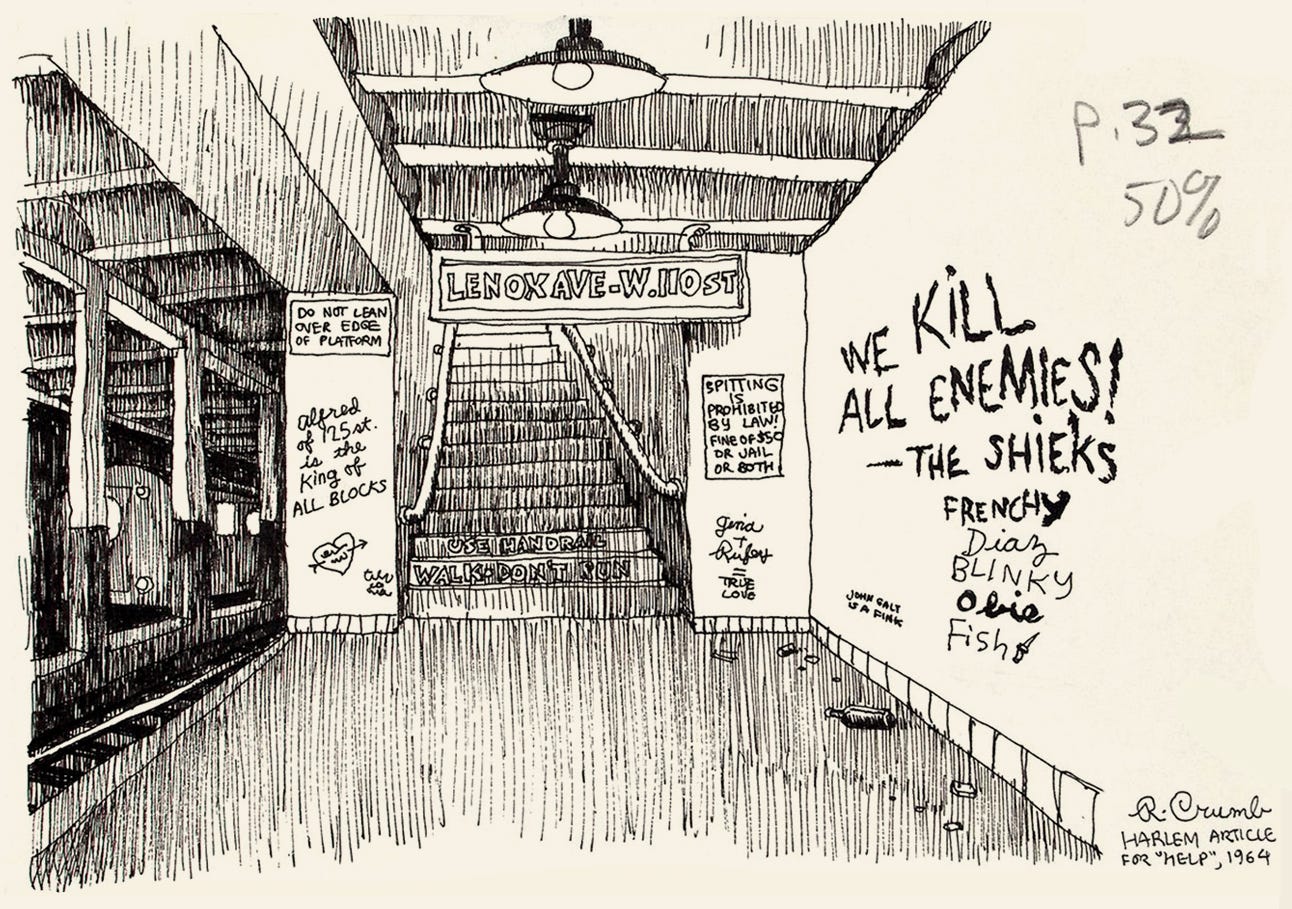 p.32
50%
LENOX AVE-W.110 ST
DO NOT LEAN
OVER EDGE
OF PLATFORM
Alfred
of 125 st.
is the
King of
ALL BLOCKS
SPITTING
IS
PROHIBITED
BY LAW!
FINE OF $50
OR JAIL
OR BOTH
USE HANDRAIL
WALK-DON'T RUN
Gina
+
=
TRUE
LOVE
WE KILL
ALL ENEMIES!
—THE SHIEKS
FRENCHY
Diaz
BLINKY
Obie
Fish
JOHN GALT
IS A FINK
R. Crumb
HARLEM ARTICLE
FOR "HELP", 1964